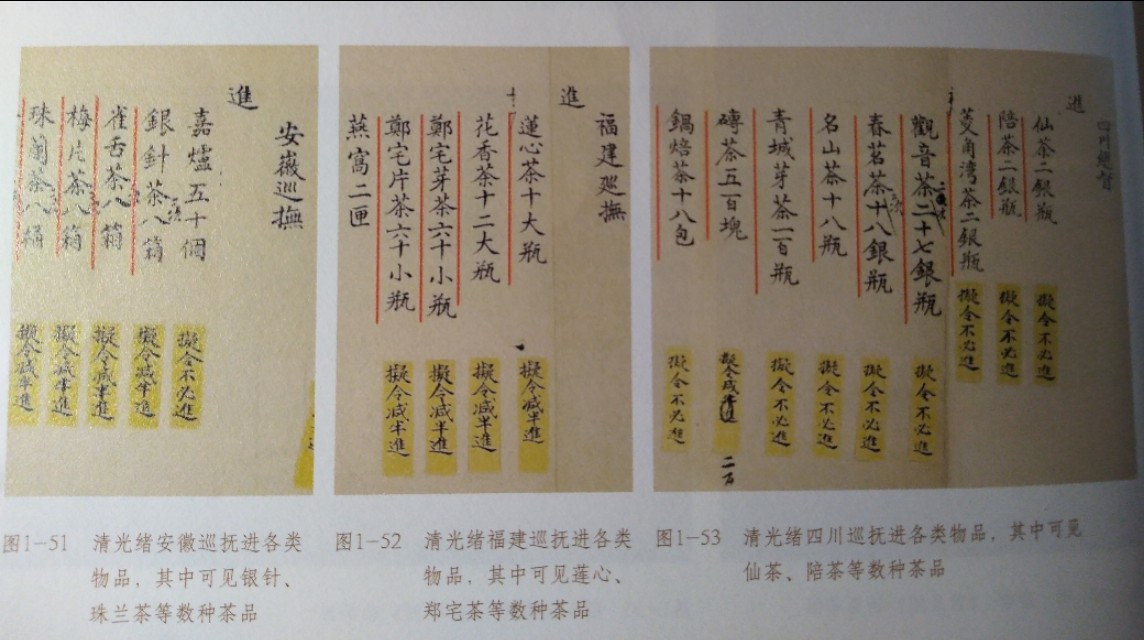 安徽巡撫
進
嘉爐五十個
擬令不必進
銀針茶八箱
擬令减半進
雀舌茶八箱
擬令减半進
梅片茶八箱
擬令减半進
珠蘭茶八桶
擬令减半進
福建巡撫
進
蓮心茶十大瓶
擬令减半進
花香茶十二大瓶
擬令减半進
鄭宅芽茶六十小瓶
擬令减半進
鄭宅片茶六十小瓶
擬令减半進
燕窩二匣
四川總督
進
仙茶二銀瓶
擬令不必進
陪茶二銀瓶
擬令不必進
菱角灣茶二銀瓶
擬令不必進
觀音茶二十七銀瓶
擬令不必進
春茗茶十八銀瓶
擬令不必進
名山茶十八瓶
擬令不必進
青城芽茶一百瓶
擬令不必進
磚茶五百塊
擬令减半進
二百
鍋焙茶十八包
擬令不必進
图1-51 清光绪安徽巡抚进各类
物品，其中可见银针、
珠兰茶等数种茶品
图1-52 清光绪福建巡抚进各类
物品，其中可见莲心、
郑宅茶等数种茶品
图1-53 清光绪四川巡抚进各类物品，其中可见
仙茶、陪茶等数种茶品